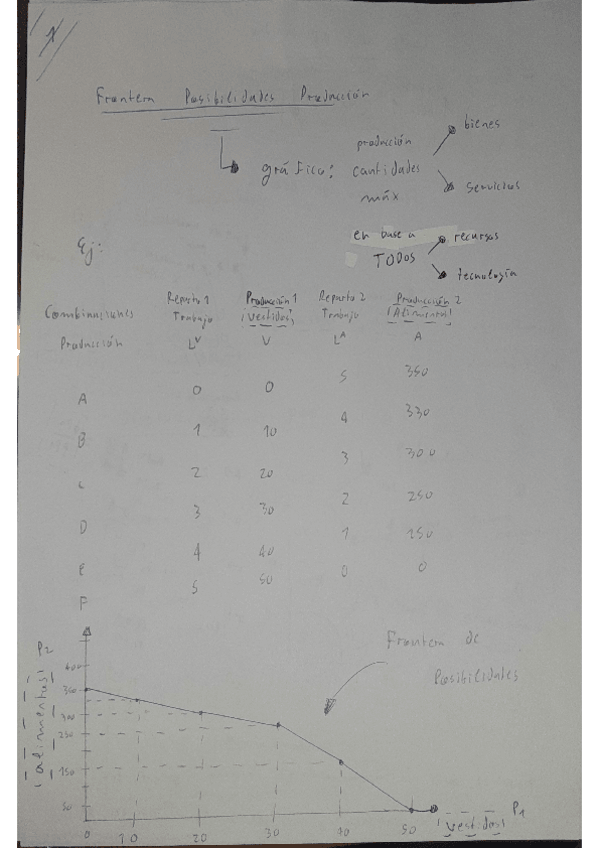 1
Frontera Posibilidades Producción
gráfico:
producción
cantidades
máx
bienes
servicios
en base a
TODOS
recursos
tecnología
Ej:
Combinaciones Producción
Reparto 1 Trabajo L^V
Producción 1 (Vestidos) V
Reparto 2 Trabajo L^A
Producción 2 (Alimentos) A
A 0 0 5 350
B 1 10 4 330
C 2 20 3 300
D 3 30 2 250
E 4 40 1 150
F 5 50 0 0
Frontera de
Posibilidades
P2
(alimentos)
400
350
300
250
150
50
0 10 20 30 40 50
P1
(vestidos)